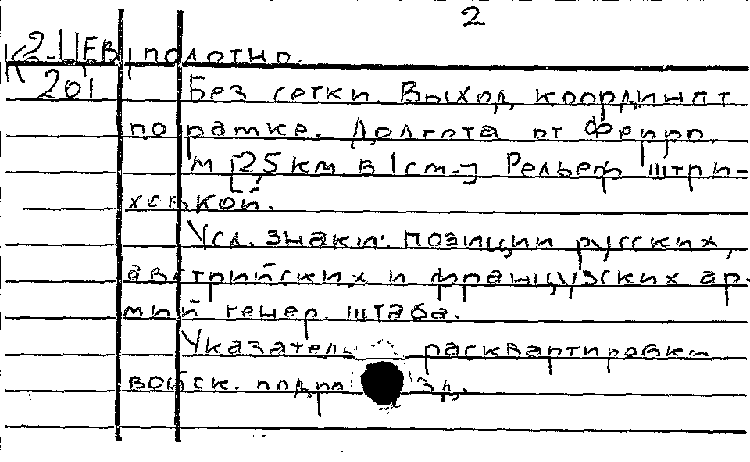 2
К2-ЦЕВ полотно.
201 Без сетки. Выход координат
по рамке. Долгота от Ферро.
М [2,5 км в 1 см.] Рельеф штри-
ховкой.
Усл. знаки: позиции русских,
австрийских и французских ар-
мий генер. штаба.
Указатель расквартировки
войск.